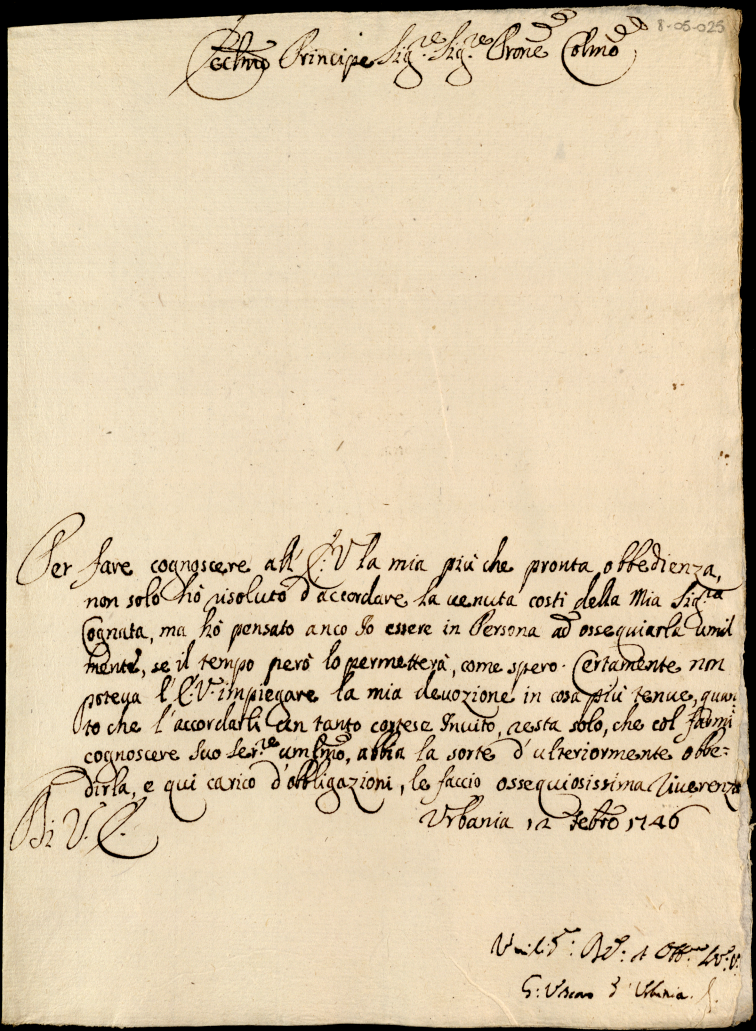 8-05-025
Ecclmo Principe Sig.re Sig.re Prone Colmo
Per fare cognoscere all' E: V la mia più che pronta obbedienza,
non solo hò risoluto d'accordare la venuta costi della Mia Sig.ra
Cognata, ma hò pensato anco Io essere in Persona ad ossequiarla umil
mente, se il tempo però lo permetterà, come spero. Certamente non
poteva l'E: V: impiegare la mia devozione in cosa più tenue, quan:
to che l'accordarli un tanto cortese Invito, resta solo, che col farmi
cognoscere Suo Ser.re umlmo, abbia la sorte d'ulteriormente obbe=
dirla, e qui carico d'obbligazioni, le faccio ossequiosissima riverenza
Di V. E.
Urbania 12 Febro 1746
G: Vescovo d'Urbania